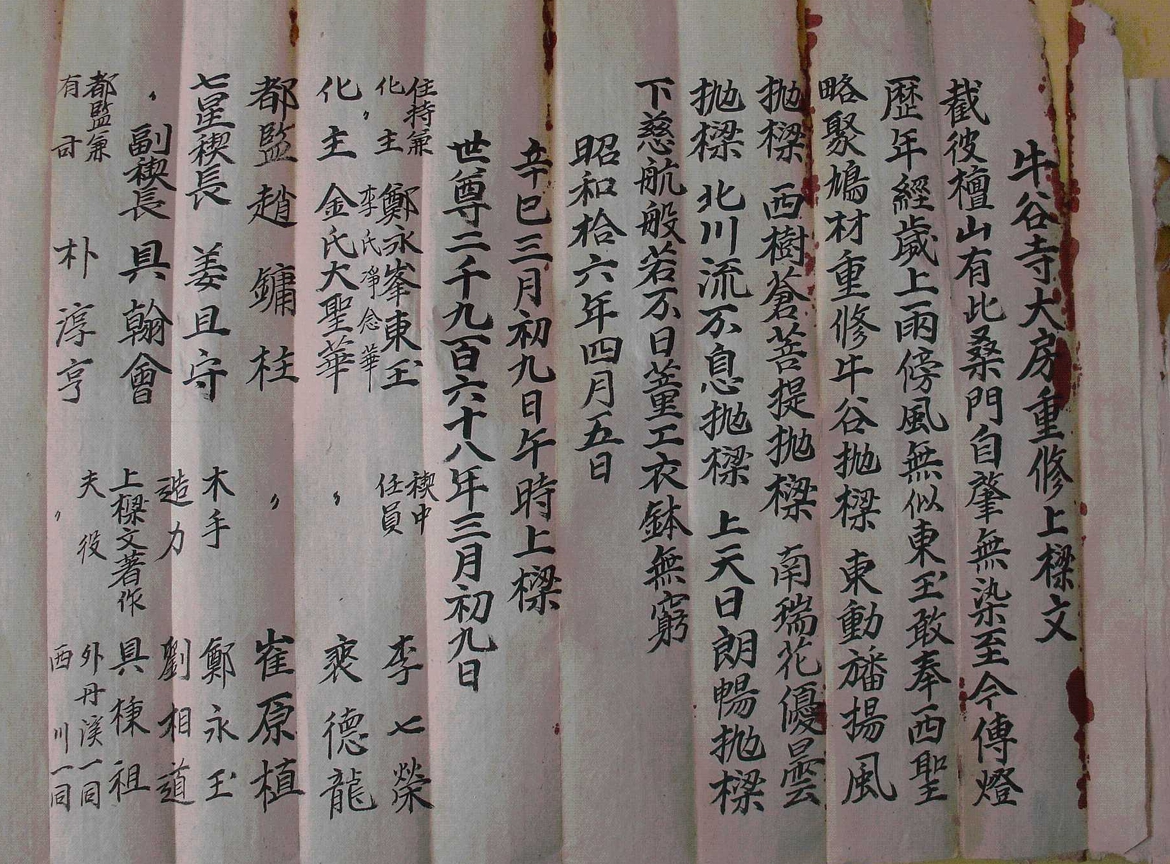 牛谷寺大房重修上樑文
截彼檀山有此桑門自肇無染至今傳燈
歷年經歲上雨傍風無似東玉敢奉西聖
略聚鳩材重修牛谷拋樑 東動旛揚風
拋樑 西樹蒼菩提拋樑 南瑞花優曇
拋樑 北川流不息拋樑 上天日朗暢拋樑
下慈航般若不日董工衣鉢無窮
昭和拾六年四月五日
辛巳三月初九日午時上樑
世尊二千九百六十八年三月初九日
住持兼化主 鄭永峯東玉 禊中任員 李七榮
化〃主 李氏淨念華
化主 金氏大聖華 〃 裵德龍
都監 趙鏞柱 〃 崔原植
七星禊長 姜且守 木手 鄭永玉
〃副禊長 具翰會 造力 劉相道
上樑文著作 具棟祖
都監兼有司 朴淳亨 夫役 外丹溪一同
〃 西川一同